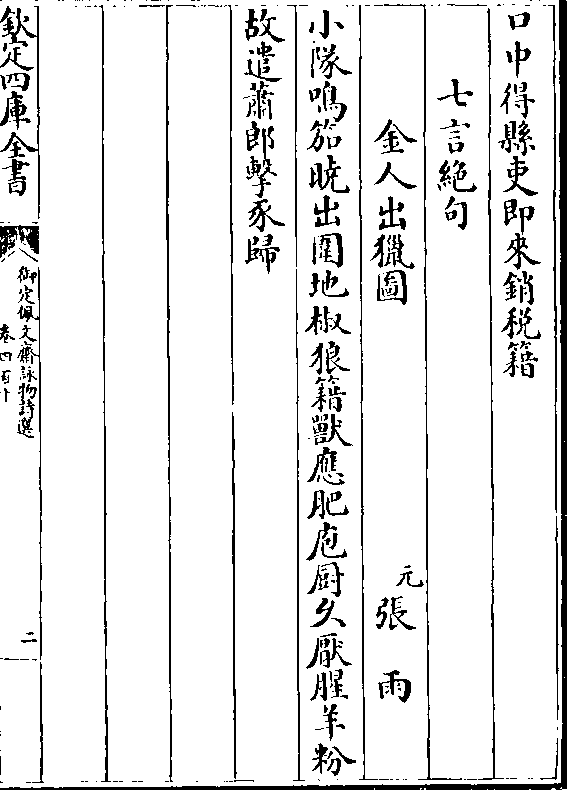 口中得縣吏即來銷税籍
七言絶句
金人出獵圖
元張雨
小隊鳴笳曉出圍地椒狼籍獸應肥庖厨久厭腥羊粉
故遣蕭郎擊豕歸
欽定四庫全書
御定佩文齋詠物詩選
卷四百十
二